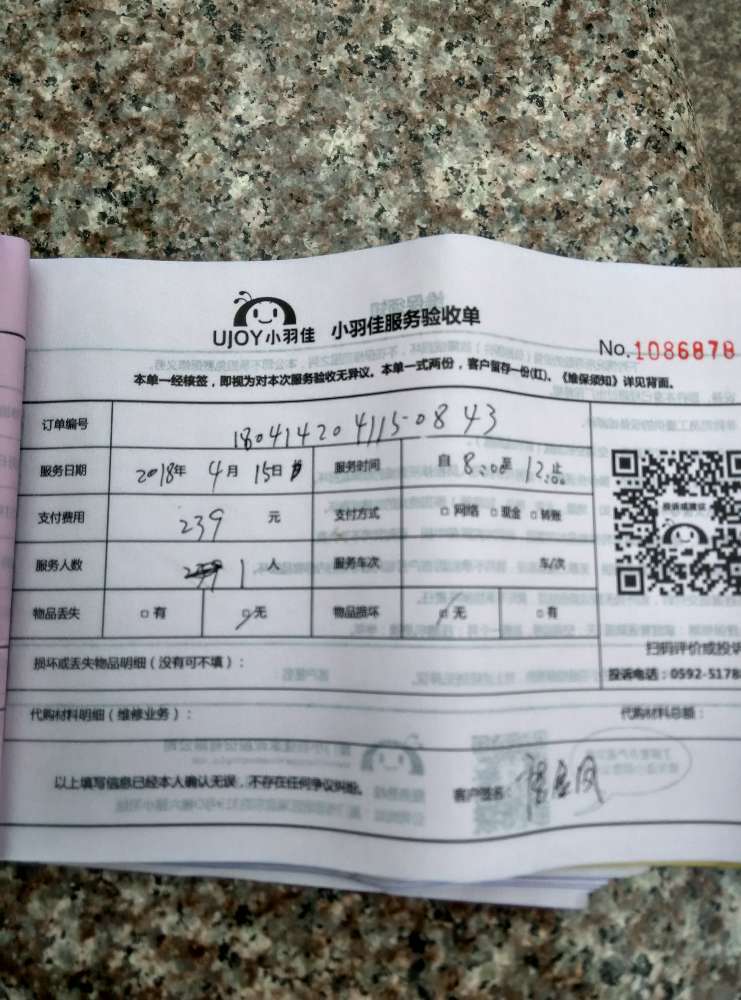 UJOY小羽佳 小羽佳服务验收单
No.1086878
本单一经核签，即视为对本次服务验收无异议。本单一式两份，客户留存一份(红)。《维保须知》详见背面。
订单编号 180414204115-0843
服务日期 2018年 4月 15日 服务时间 自 8:00至 12:00止
支付费用 239 元 支付方式 □网络 □现金 □转账
服务人数 1 人 服务车次 车/次
物品丢失 □有 □无 物品损坏 □无 □有
投诉或建议
扫码评价或投诉
损坏或丢失物品明细（没有可不填）：
投诉电话：0592-5178
代购材料明细（维修业务）： 代购材料总额：
以上填写信息已经本人确认无误，不存在任何争议纠纷。 客户签名：